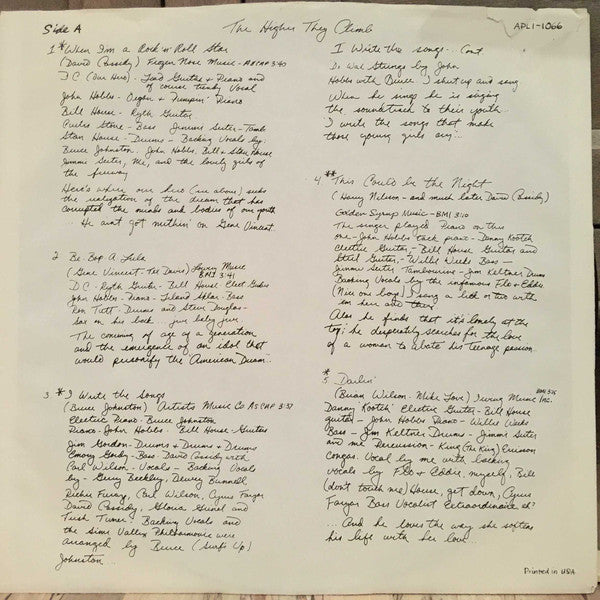 Side A
The Higher They Climb
APL1-1066
1 * When I'm a Rock 'n' Roll Star
(David Cassidy) Frozen Nose Music - ASCAP 3:40
D.C. (Our Hero) - Lead Guitar & Piano and
of course trendy Vocal
John Hobbs - Organ & Jumpin' Piano
Bill House - Ryth Guitar
Curtis Stone - Bass Jimmie Seiter - Tamb
Stan House - Drums - Backing Vocals by:
Bruce Johnston, John Hobbs, Bill & Stan House
Jimmie Seiter, Me, and the lovely girls of
the freeway
Here's where our hero (in above) seeks
the realization of the dream that has
corrupted the minds and bodies of our youth
He ain't got nuthin' on Gene Vincent
2 Be Bop A Lula
(Gene Vincent - Tex Davis) Lowery Music
BMI 3:41
D.C. - Ryth Guitar - Bill House - Elect Guitar
John Hobbs - Piano - Leland Sklar - Bass
Ron Tutt - Drums and Steve Douglas -
sax on his back... jive baby jive
The coming of age of a generation
and the emergence of an idol that
would personify the "American Dream"..
3 * I Write the Songs
(Bruce Johnston) Artists Music Co ASCAP 3:37
Electric Piano - Bruce Johnston
Piano - John Hobbs - Bill House - Guitar
Jim Gordon - Drums & Drums & Drums
Emory Gordy - Bass David Cassidy with
Carl Wilson - Vocals - Backing Vocals
by - Gerry Beckley, Dewey Bunnell,
Richie Furay, Carl Wilson, Cyrus Faryar
David Cassidy, Gloria Grinel and
Tish Turner. Backing Vocals and
the Simi Valley Philharmonic were
arranged by Bruce (Surfs Up)
Johnston...
I Write the songs... Cont.
De Wal Strings by John
Hobbs with Bruce. I shut up and sang
When he sings he is saying
the soundtrack to their youth..
I write the songs that make
those young girls cry...
4 ** This Could be the Night
(Harry Nilsson - and much later David Cassidy)
Golden Syrup Music - BMI 3:10
The singer played Piano on this
one - John Hobbs tack piano - Danny Kootch
electric Guitar - Bill House Guitar and
Steel Guitar - Willie Weeks Bass -
Jimmie Seiter Tambourine - Jim Keltner Drums
Backing Vocals by the infamous Flo & Eddie
(Nice one boys) I sang a lick or two with
em here and there
Alas he finds that it's lonely at the
top: he desperately searches for the love
of a woman to abate his teenage passion
* 5 Darlin'
(Brian Wilson - Mike Love) Irving Music Inc.
BMI 3:26
Danny Kootch Electric Guitar - Bill House
guitar - John Hobbs Piano - Willie Weeks
Bass - Jim Keltner Drums - Jimmie Seiter
and me Percussion - King (The King) Errisson
Congas. Vocal by me with backing
vocals by Flo & Eddie, myself, Bill
(don't touch me) House, get down, Cyrus
Faryar Bass Vocalist Extraordinaire eh?
... And he loves the way she softens
his life with her love
Printed in USA